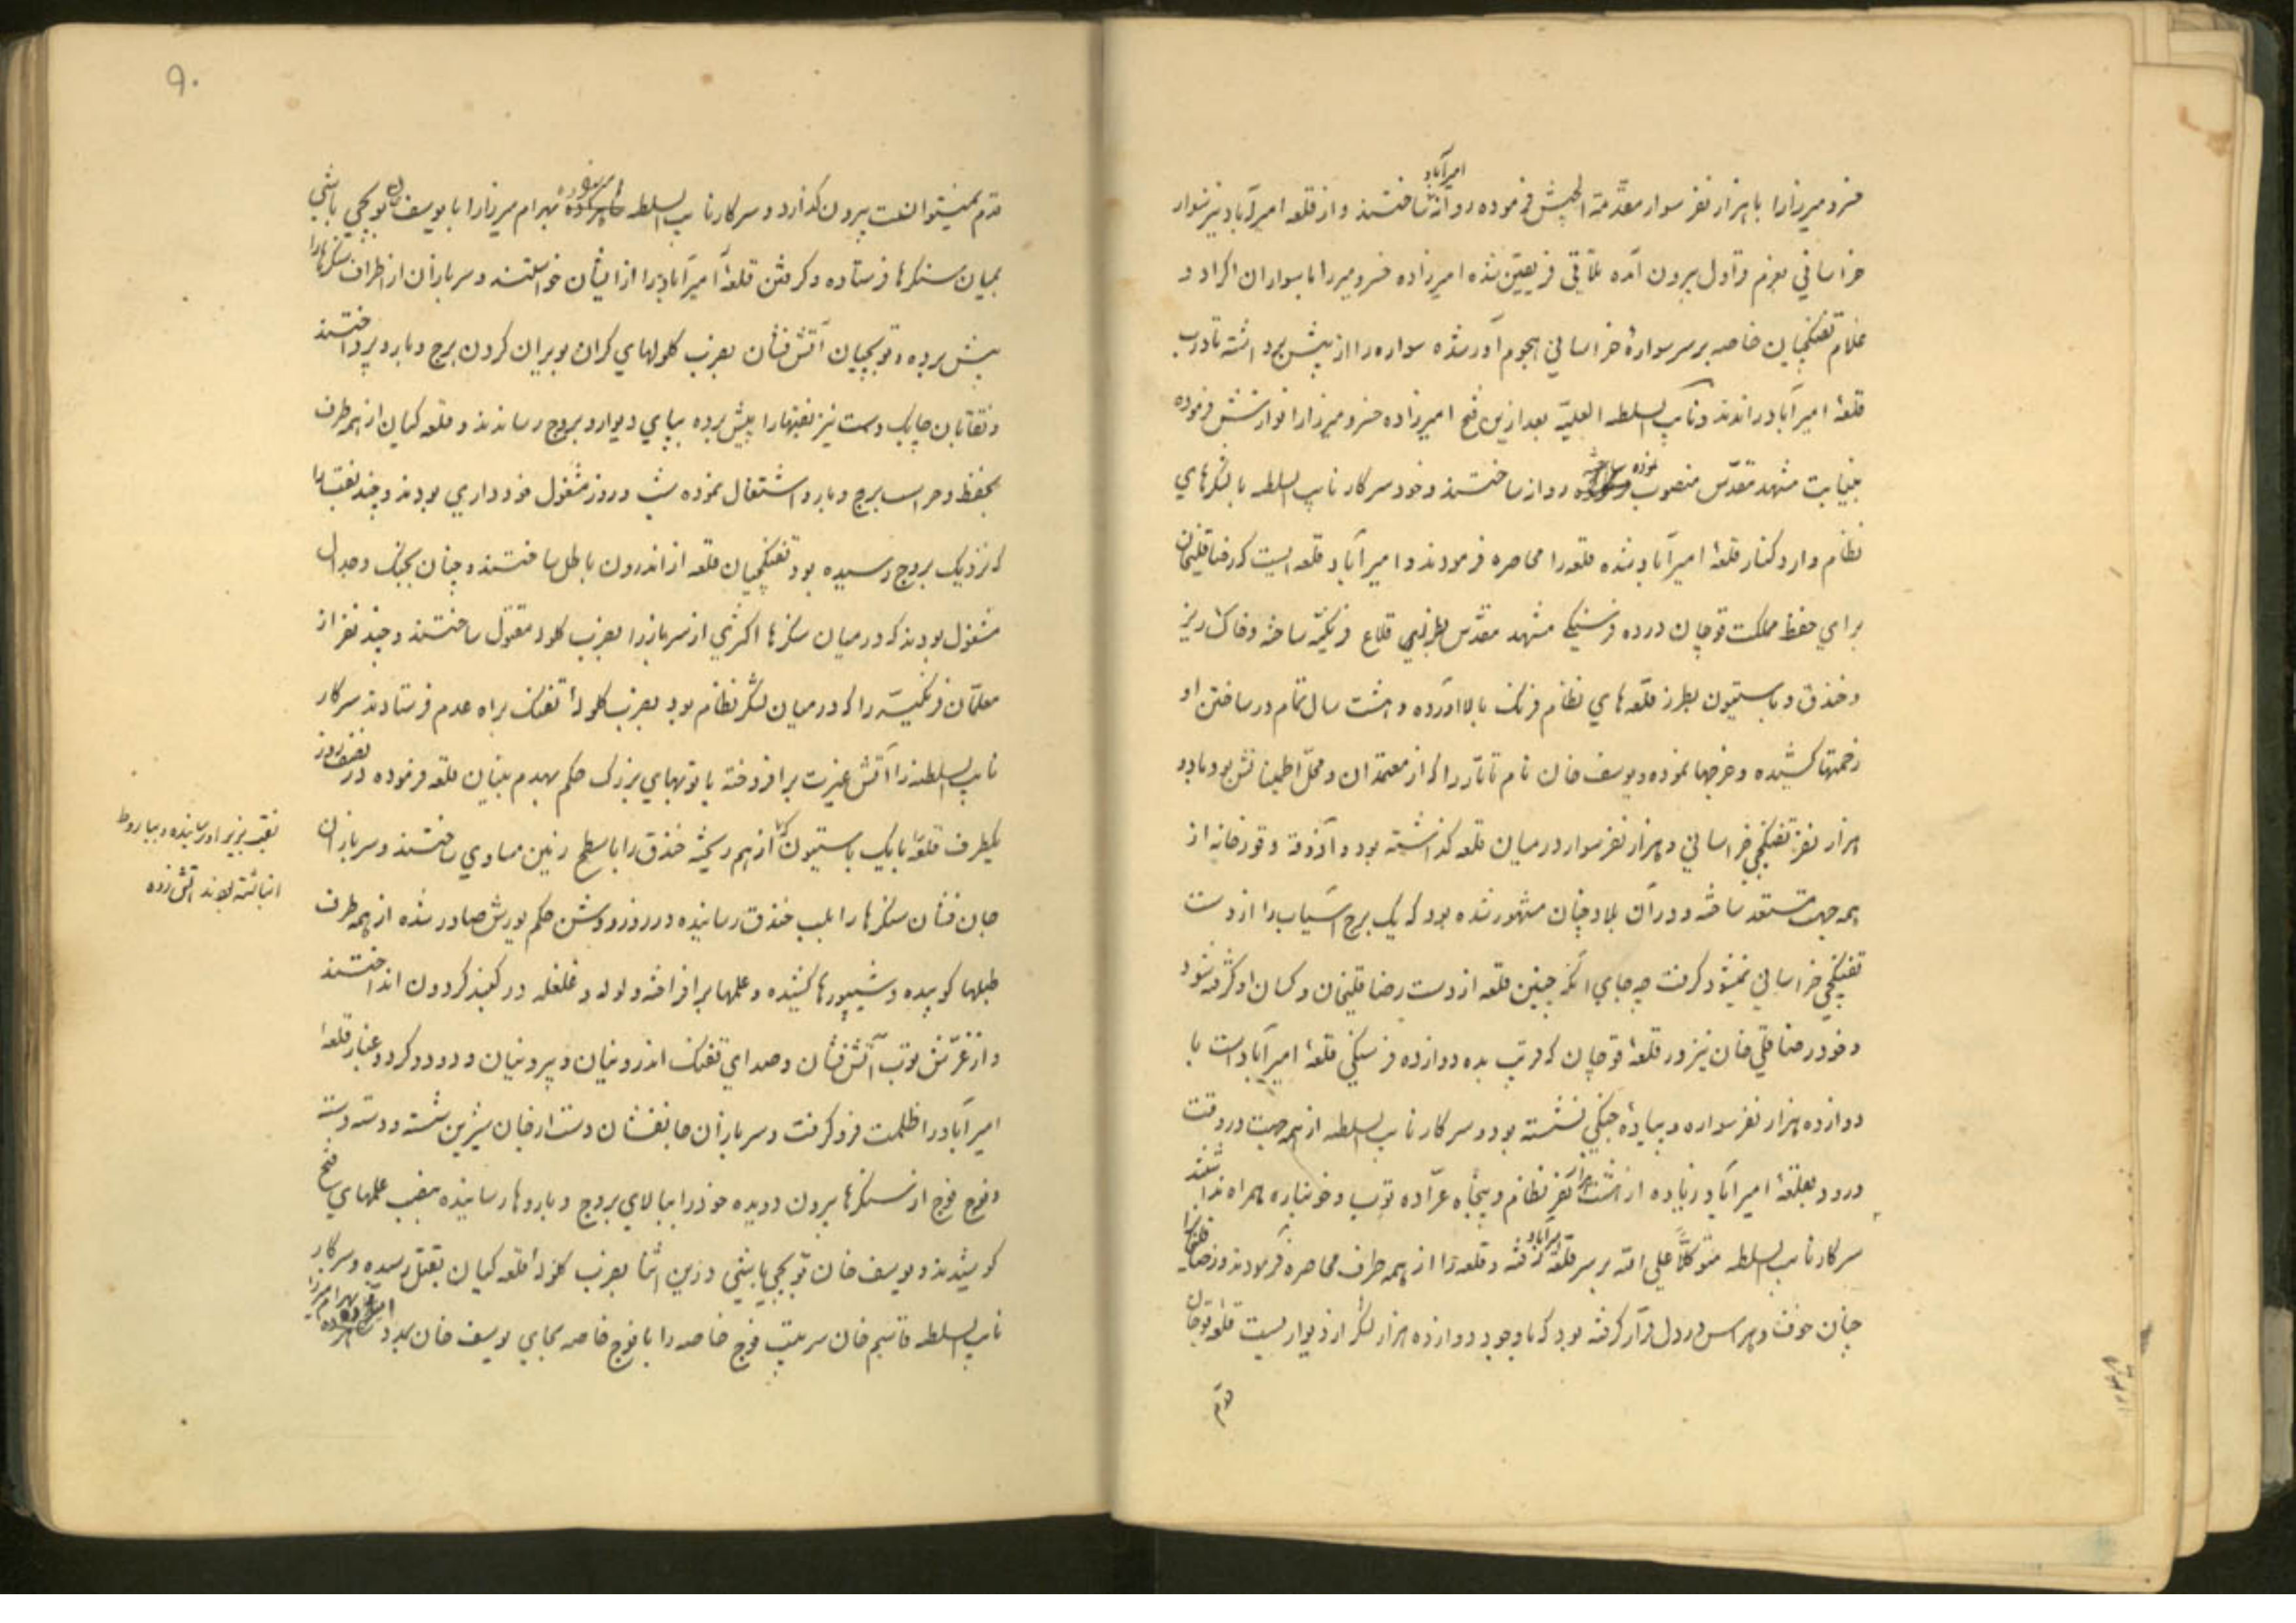 خسرو میرزا را با هزار نفر سوار مقدّمة الجیش فرموده روانه امیرآباد ساختند و از قلعه امیرآباد نیز سوار
خراسانی بعزم قراول بیرون آمده تلاقی فریقین شده امیرزاده خسرو میرزا با سواران اکراد و
غلام تفنکچیان خاصه بر سر سوارهٔ خراسانی هجوم آور شده سواره را از پیش برداشته تا درب
قلعهٔ امیرآباد راندند و نایب السلطنه العلیّه بعد ازین فتح امیرزاده خسرو میرزا را نوازشش فرموده
بنیابت مشهد مقدّس منصوب نموده روانه ساختند و خود سرکار نایب السلطنه با لشکرهای
نظام وارد کنار قلعهٔ امیرآباد شده قلعه را محاصره فرمودند و امیرآباد قلعه ایست که رضاقلیخان
برای حفظ مملکت قوچان در ده فرسنکی مشهد مقدّس بطرز قلاع فرنکیّه ساخته و خاک ریز
و خندق و باستیون بطرز قلعه های نظام فرنک بالا آورده و هشت سال تمام در ساختن او
زحمتها کشیده و خرجها نموده و یوسف خان نام تاتار را که از معتمدان و محلّ اطمینانش بود با دو
هزار نفر تفنکچی خراسانی و هزار نفر سوار در میان قلعه کذاشته بود و آذوقه و قورخانه از
همه جهت مستعد ساخته و در آن بلاد چنان مشهور شده بود که یک برج آسیاب را از دست
تفنکچی خراسانی نمیشود کرفت چه جای آنکه چنین قلعه از دست رضاقلیخان و کسان او کرفته شود
و خود رضا قلی خان نیز در قلعهٔ قوچان که قریب بده دوازده فرسنکی قلعهٔ امیرآباد است با
دوازده هزار نفر سواره و پیادهٔ جنکی نشسته بود و سرکار نایب السلطنه از همه جهت در وقت
ورود بقلعهٔ امیرآباد زیاده از هشت هزار نفر نظام و پنجاه عرّاده توپ و خونپاره همراه نداشتند
سرکار نایب السلطنه متوکلاً علی الله بر سر قلعه امیرآباد رفته و قلعه را از همه طرف محاصره فرمودند و رضاقلیخان را
چنان خوف و هراس در دل قرار کرفته بود که با وجود دوازده هزار لشکر از دیوار بست قلعه قوچان
قدم
۹۰
قدم نمیتوانست بیرون کذارد و سرکار نایب السلطنه بهرام میرزا را با یوسف خان توپچی باشی
بمیان سنکرها فرستاده و کرفتن قلعهٔ امیرآباد را از ایشان خواستند و سربازان از اطراف سنکرها را
پیش برده و توپچیان آتش فشان بضرب کلولهای کران بویران کردن برج و بارو پرداختند
و نقّابان چابک دست نیز نقبها را پیش برده بپای دیوار و بروج رساندند و قلعه کیان از همه طرف
بحفظ و حراست برج و بارو اشتغال نموده شب و روز مشغول خود داری بودند و چند نقب را
که نزدیک بروج رسیده بود تفنکچیان قلعه از اندرون باطل ساختند و چنان بجنک و جدال
مشغول بودند که در میان سنکرها اکثری از سرباز را بضرب کلوله مقتول ساختند و چند نفر از
معلّمان فرنکیّه را که در میان لشکر نظام بود بضرب کلولهٔ تفنک براه عدم فرستادند سرکار
نایب السلطنه را آتش غیرت برافروخته با توپهای بزرک حکم بهدم بنیان قلعه فرموده در نصف روز
یکطرف قلعه با یک باستیون که نقب بزیر او رسانیده و بباروط انباشته بودند آتش زده از هم ریخته خندق را با سطح زمین مساوی ساختند و سربازان
جان فشان سنکرها را بلب خندق رسانیده در روز روشن حکم یورش صادر شده از همه طرف
طبلها کوبیده و شیپورها کشیده و علمها برافراخته ولوله و غلغله در کنبد کردون انداختند
و از غرّش توپ آتش فشان و صدای تفنک اندرونیان و بیرونیان و دود و کرد و غبار قلعهٔ
امیرآباد را ظلمت فرو کرفت و سربازان جانفشان دست از جان شیرین شسته و دسته دسته
و فوج فوج از سنکرها بیرون دویده خود را ببالای بروج و باروها رسانیده بنصب علمهای فتح
کوشیدند و یوسف خان توپچی باشی درین اثنا بضرب کلولهٔ قلعه کیان بقتل رسیده و سرکار
نایب السلطنه قاسم خان سرتیپ فوج خاصه را با فوج خاصه بجای یوسف خان بمدد بهرام میرزا